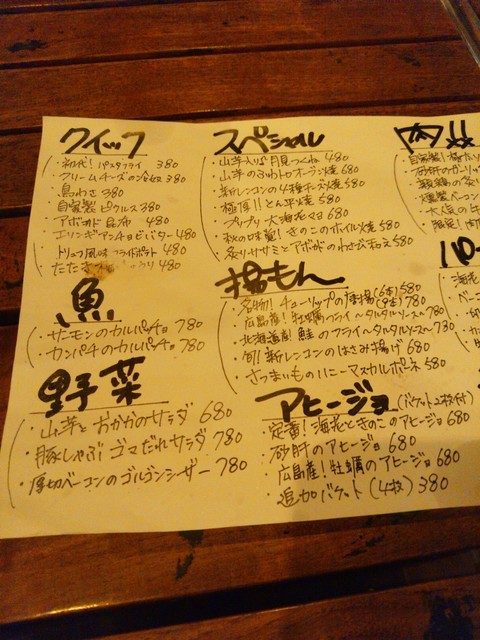 クイック
・初代!パスタフライ 380
・クリームチーズの 380
・鳥わさ 380
・自家製ピクルス 380
・アボカド昆布 480
・エリンギアンチョビバター 480
・トリュフ風味フライドポテト 480
・たたき 480
魚
・サーモンのカルパッチョ 780
・カンパチのカルパッチョ 780
野菜
・山芋とおかかのサラダ 680
・豚しゃぶゴマだれサラダ 780
・厚切ベーコンのゴルゴンシーザー 780
スペシャル
・山芋入り月見つくね 480
・山芋のふわトロオーブン焼 680
・新レンコンの4種チーズ焼 580
・極厚!!とん平焼 580
・プリプリ大海老マヨ 680
・秋の味覚!きのこのホイル焼 580
・炙りサーモンとアボカドのわさび和え 580
揚もん
・名物!チューリップの唐揚(6本) 580
(9本) 780
・広島産!牡蠣フライ〜タルタルソース〜 780
・北海道産!鮭のフライ〜タルタルソース〜 730
・旬!新レンコンのはさみ揚げ 680
・さつまいものハニーマスカルポーネ 580
アヒージョ(バケット2枚付)
・定番!海老ときのこのアヒージョ 680
・砂肝のアヒージョ 680
・広島産!牡蠣のアヒージョ 680
・追加バケット(4枚) 380
肉!!
・自家製!
・砂肝のガーリッ
・燻製ベーコン
・大人の
パ
・海老
・ベーコン